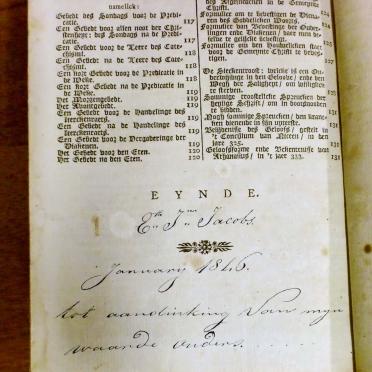 namelick:
Gebedt des Sondags voor de Predicatie. 117
Een Gebedt voor allen noot der Christenheyt: des Sondags na de Predicatie. 117
Een Gebedt voor de Leere des Catechismi. 118
Een Gebedt na de Leere des Catechismi. 118
Een kort Gebedt voor de Predicatie in de Weke. 118
Een kort Gebedt na de Predicatie in de Weke. 118
Het Morgengebedt. 119
Het Avontgebedt. 119
Een Gebedt voor de Handelinge des Kerckenraets. 119
Een Gebedt na de Handelinge des Kerckenraets. 119
Een Gebedt voor de Vergaderinge der Diakenen. 120
Het Gebedt voor den Eten. 120
Het Gebedt na den Eten.
in de Gemeynte Christi. 124
Formulier om te bevestigen de Dienaren des Goddelicken Woorts.
Formulier om Bevestinge der Ouderlingen ende Diakenen
Formulier om den Houwelicken staet voor de Gemeynte Christi te bevestigen.
De Sieckentroost: welcke is een Onderwijsinge in den Geloove, ende den Wegh der Saligheyt, om williglick te sterven.
Sommige troostelicke Spreucken der heylige Schrift,
Noch sommige Spreucken, den krancken dienende in sijn uyterste. 131
Belijdenisse des Geloofs, gestelt in 't Concilium van Niceen, in den jare 325. 131
Geloofsforme ende Bekentenisse van Athanasius, in 't jaer 333. 131
EYNDE.
Jacobs.
January 1846.
tot aandinking van myn
waarde ouders.